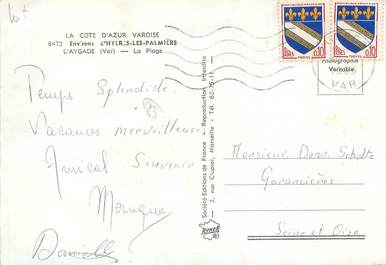 LA COTE D'AZUR VAROISE
8472 Environs d'HYERES-LES-PALMIERS
L'AYGADE (Var) — La Plage
Temps Splendide.
Vacances merveilleuses
Amical Souvenir
Monique
Danielle
Société Editions de France - Reproduction Interdite
2, rue Clapier, Marseille - Tél. 62-75-11
Photographie
Véritable
VAR
0,10
0,10
Monsieur Dano Schultz
Garancières
Seine et Oise